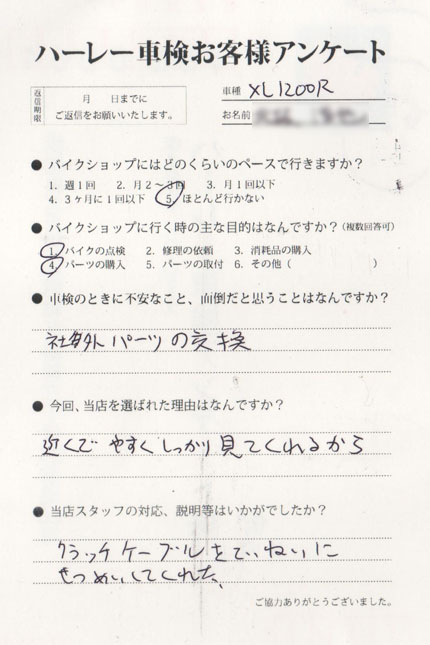 ハーレー車検お客様アンケート
返信期限
月　　日までに
ご返信をお願いいたします。
車種 XL1200R
お名前
● バイクショップにはどのくらいのペースで行きますか？
1. 週1回　2. 月2〜3回　3. 月1回以下
4. 3ヶ月に1回以下　5. ほとんど行かない
● バイクショップに行く時の主な目的はなんですか？（複数回答可）
1. バイクの点検　2. 修理の依頼　3. 消耗品の購入
4. パーツの購入　5. パーツの取付　6. その他（　　　　　　）
● 車検のときに不安なこと、面倒だと思うことはなんですか？
社外パーツの交換
● 今回、当店を選ばれた理由はなんですか？
近くで やすく しっかり見てくれるから
● 当店スタッフの対応、説明等はいかがでしたか？
クラッチケーブルをていねいに
せつめいしてくれた、
ご協力ありがとうございました。